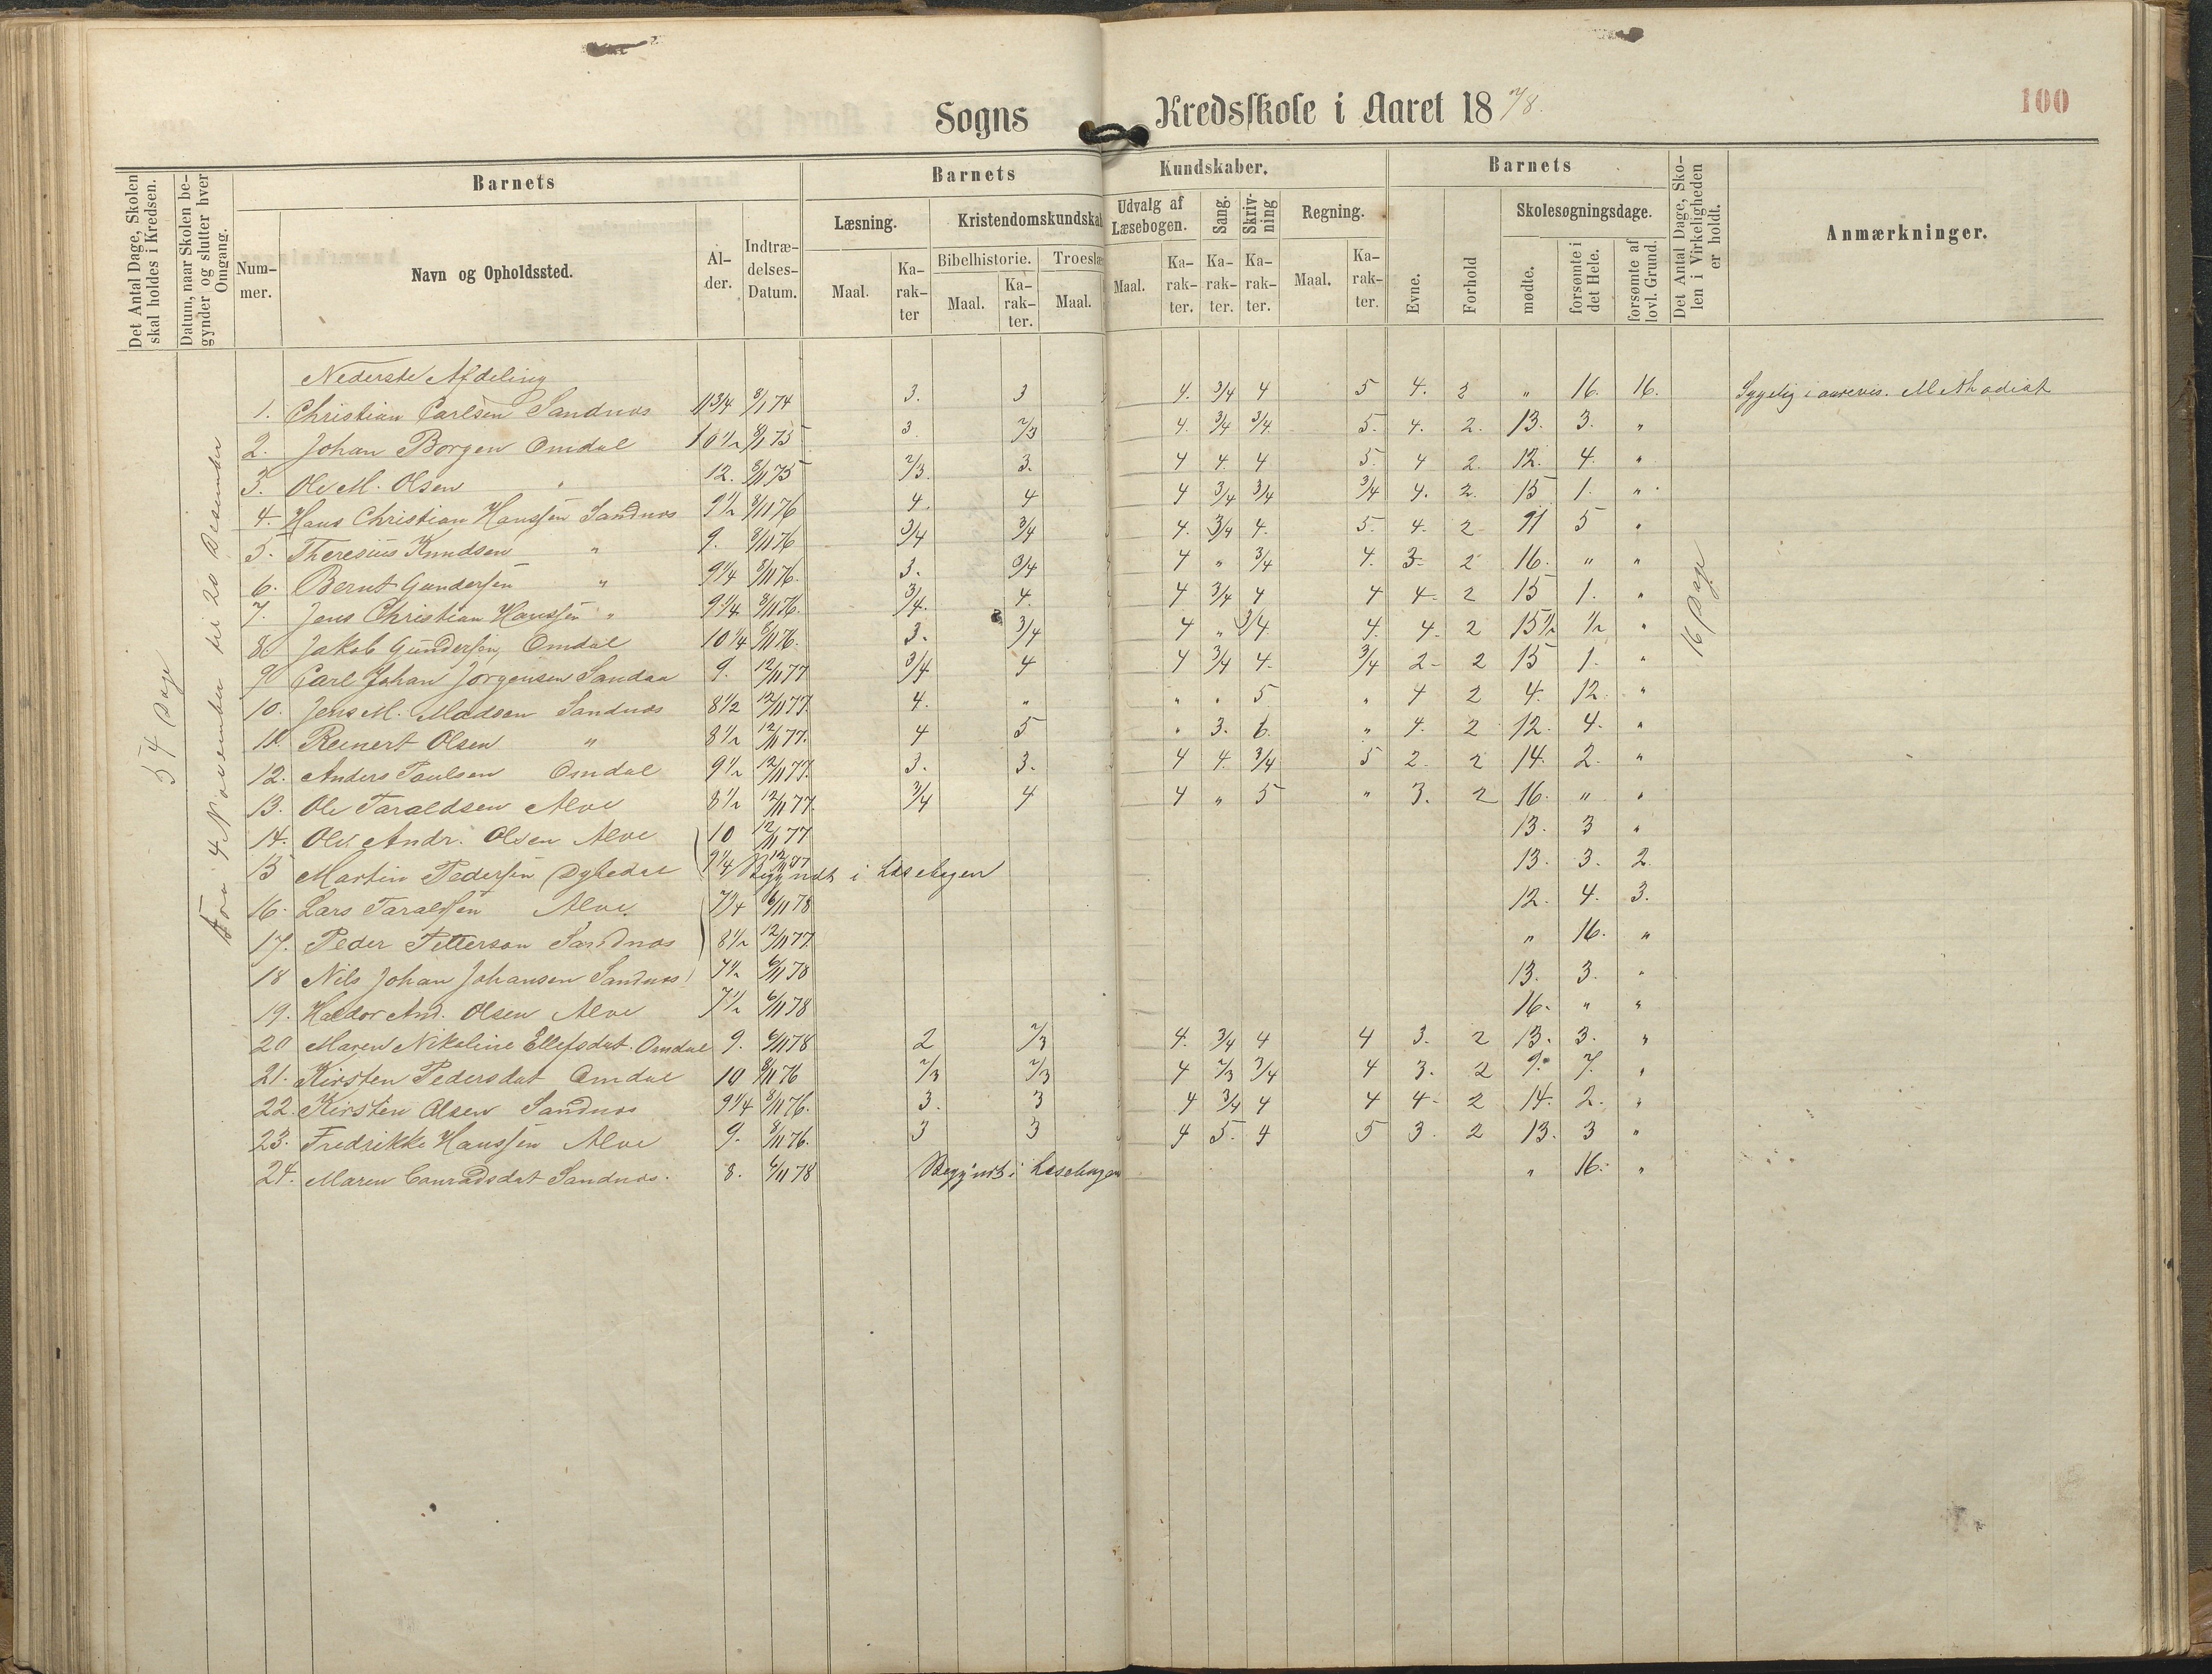 Sogns Kredsskole i Aaret 18 7/8.
100
Det Antal Dage, Skolen skal holdes i Kredsen.
Datum, naar Skolen begynder og slutter hver Omgang.
Barnets
Barnets Kundskaber.
Barnets
Det Antal Dage, Skolen i Virkeligheden er holdt.
Anmærkninger.
Nummer.
Navn og Opholdssted.
Alder.
Indtrædelses-Datum.
Læsning.
Kristendomskundskab
Udvalg af Læsebogen.
Sang.
Skrivning
Regning.
Evne.
Forhold
Skolesøgningsdage.
Maal.
Karakter
Bibelhistorie.
Troeslæ
Maal.
Karakter.
Maal.
Maal.
Karakter.
Karakter.
Karakter.
Maal.
Karakter.
mødte.
forsømte i det Hele.
forsømte af lovl. Grund.
54 Dage
Fra 4 November til 20 Desember
16 Dage
Nederste Afdeling
1. Christian Carlsen Sandnes 11 3/4 8/1 74 3. 3 4. 3/4 4 5 4. 3 " 16. 16. Sygelig Methodist
2. Johan Borgen Omdal 10 1/2 8/1 75 3. 2/3 4. 3/4 3/4 5. 4. 2. 13. 3. "
3. Ole M. Olsen " 12. 8/11 75 2/3. 3. 4 4. 4 5. 4 2. 12. 4. "
4. Hans Christian Hanssen Sandnes 9 1/2 8/11 76 4. 4 4 3/4 3/4 3/4 4. 2. 15 1. "
5. Theresius Knudsen " 9. 8/11 76 3/4 3/4 4. 3/4 4. 5. 4. 2 11 5 "
6. Bernt Gundersen " 9 1/4 8/11 76. 3. 3/4 4 " 3/4 4. 3. 2 16. " "
7. Jens Christian Hanssen " 9 1/4 8/11 76. 3/4. 4. 4 3/4 4 4 4. 2 15 1. "
8. Jakob Gundersen, Omdal 10 1/4 8/11 76. 3. 3/4 4 " 3/4 4. 4. 2 15 1/2 1/2 "
9 Carl Johan Jorgensen Sandaa 9. 12/11 77 3/4 4 4 3/4 4. 3/4 2. 2 15 1. "
10. Jens M. Madsen Sandnes 8 1/2 12/11 77. 4. " " " 5 " 4 2 4. 12. "
11. Reinert Olsen " 8 1/2 12/11 77. 4 5 " 3. 6. " 4. 2 12. 4. "
12. Anders Paulsen Omdal 9 1/2 12/11 77. 3. 3. 4 4. 3/4 5 2. 2 14. 2. "
13. Ole Taraldsen Alve 8 1/2 12/11 77. 3/4 4 4 " 5 " 3. 2 16. " "
14. Ole Andr. Olsen Alve 10 12/11 77 13. 3 "
15 Martin Pedersen Dybedal 9 1/4 12/11 77 Begyndt i Læsebogen 13. 3. 2.
16. Lars Taraldsen Alve. 7 1/4 6/11 78 12. 4. 3.
17. Peder Petterson Sandnes 8 1/2 12/11 77. " 16. "
18 Nils Johan Johansen Sandnes 7 1/2 6/11 78 13. 3. "
19. Haldor And. Olsen Alve 7 1/2 6/11 78 16. " "
20 Maren Nikoline Ellefsdat. Omdal 9. 6/11 78 2 2/3 4. 3/4 4 4 3. 2 13. 3. "
21. Kirsten Pedersdat Omdal 10 8/11 76 2/3 2/3 4 2/3 3/4 4 3. 2 9. 7. "
22. Kirsten Olsen Sandnes 9 1/4 8/11 76. 3. 3 4 3/4 4 4 4. 2 14. 2. "
23. Fredrikke Hanssen Alve 9. 8/11 76. 3 3 4 5. 4 5 3. 2 13. 3 "
24. Maren Conradsdat Sandnes. 8. 6/11 78 Begyndt i Læsebogen " 16. "